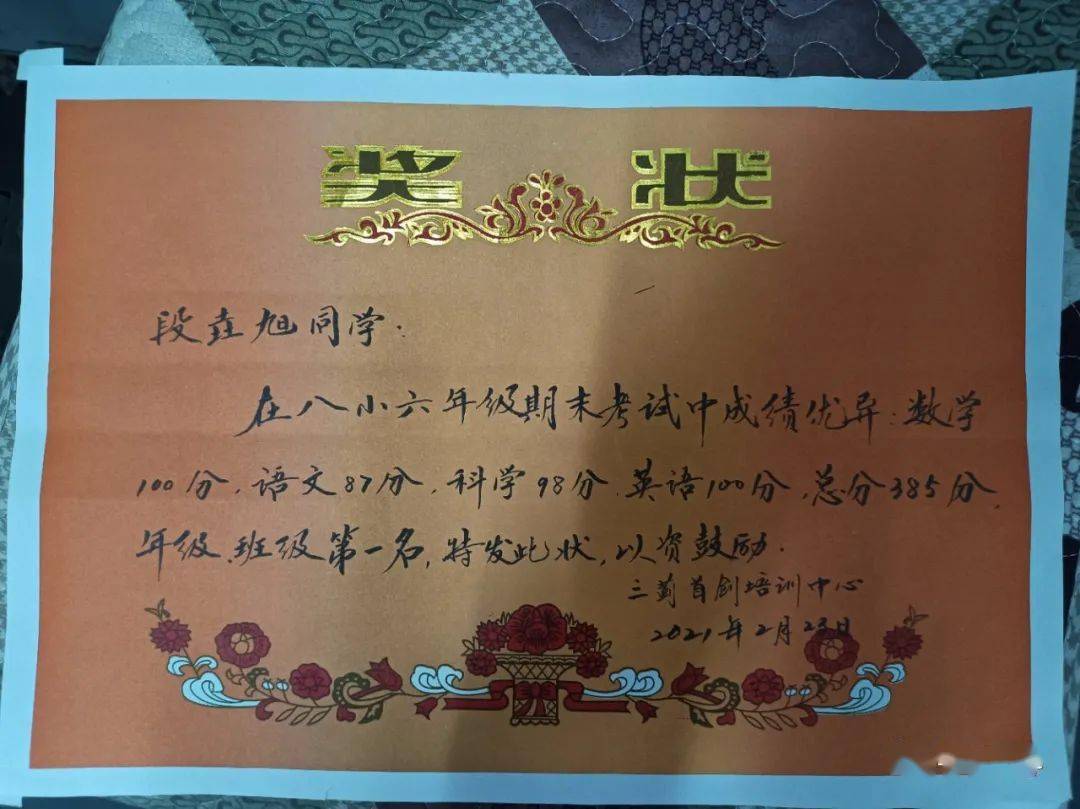 奖状
段垚旭同学.
在八小六年级期末考试中成绩优异:数学
100分,语文87分,科学98分,英语100分,总分385分,
年级.班级第一名,特发此状,以资鼓励.
首创培训中心
2021年2月23日